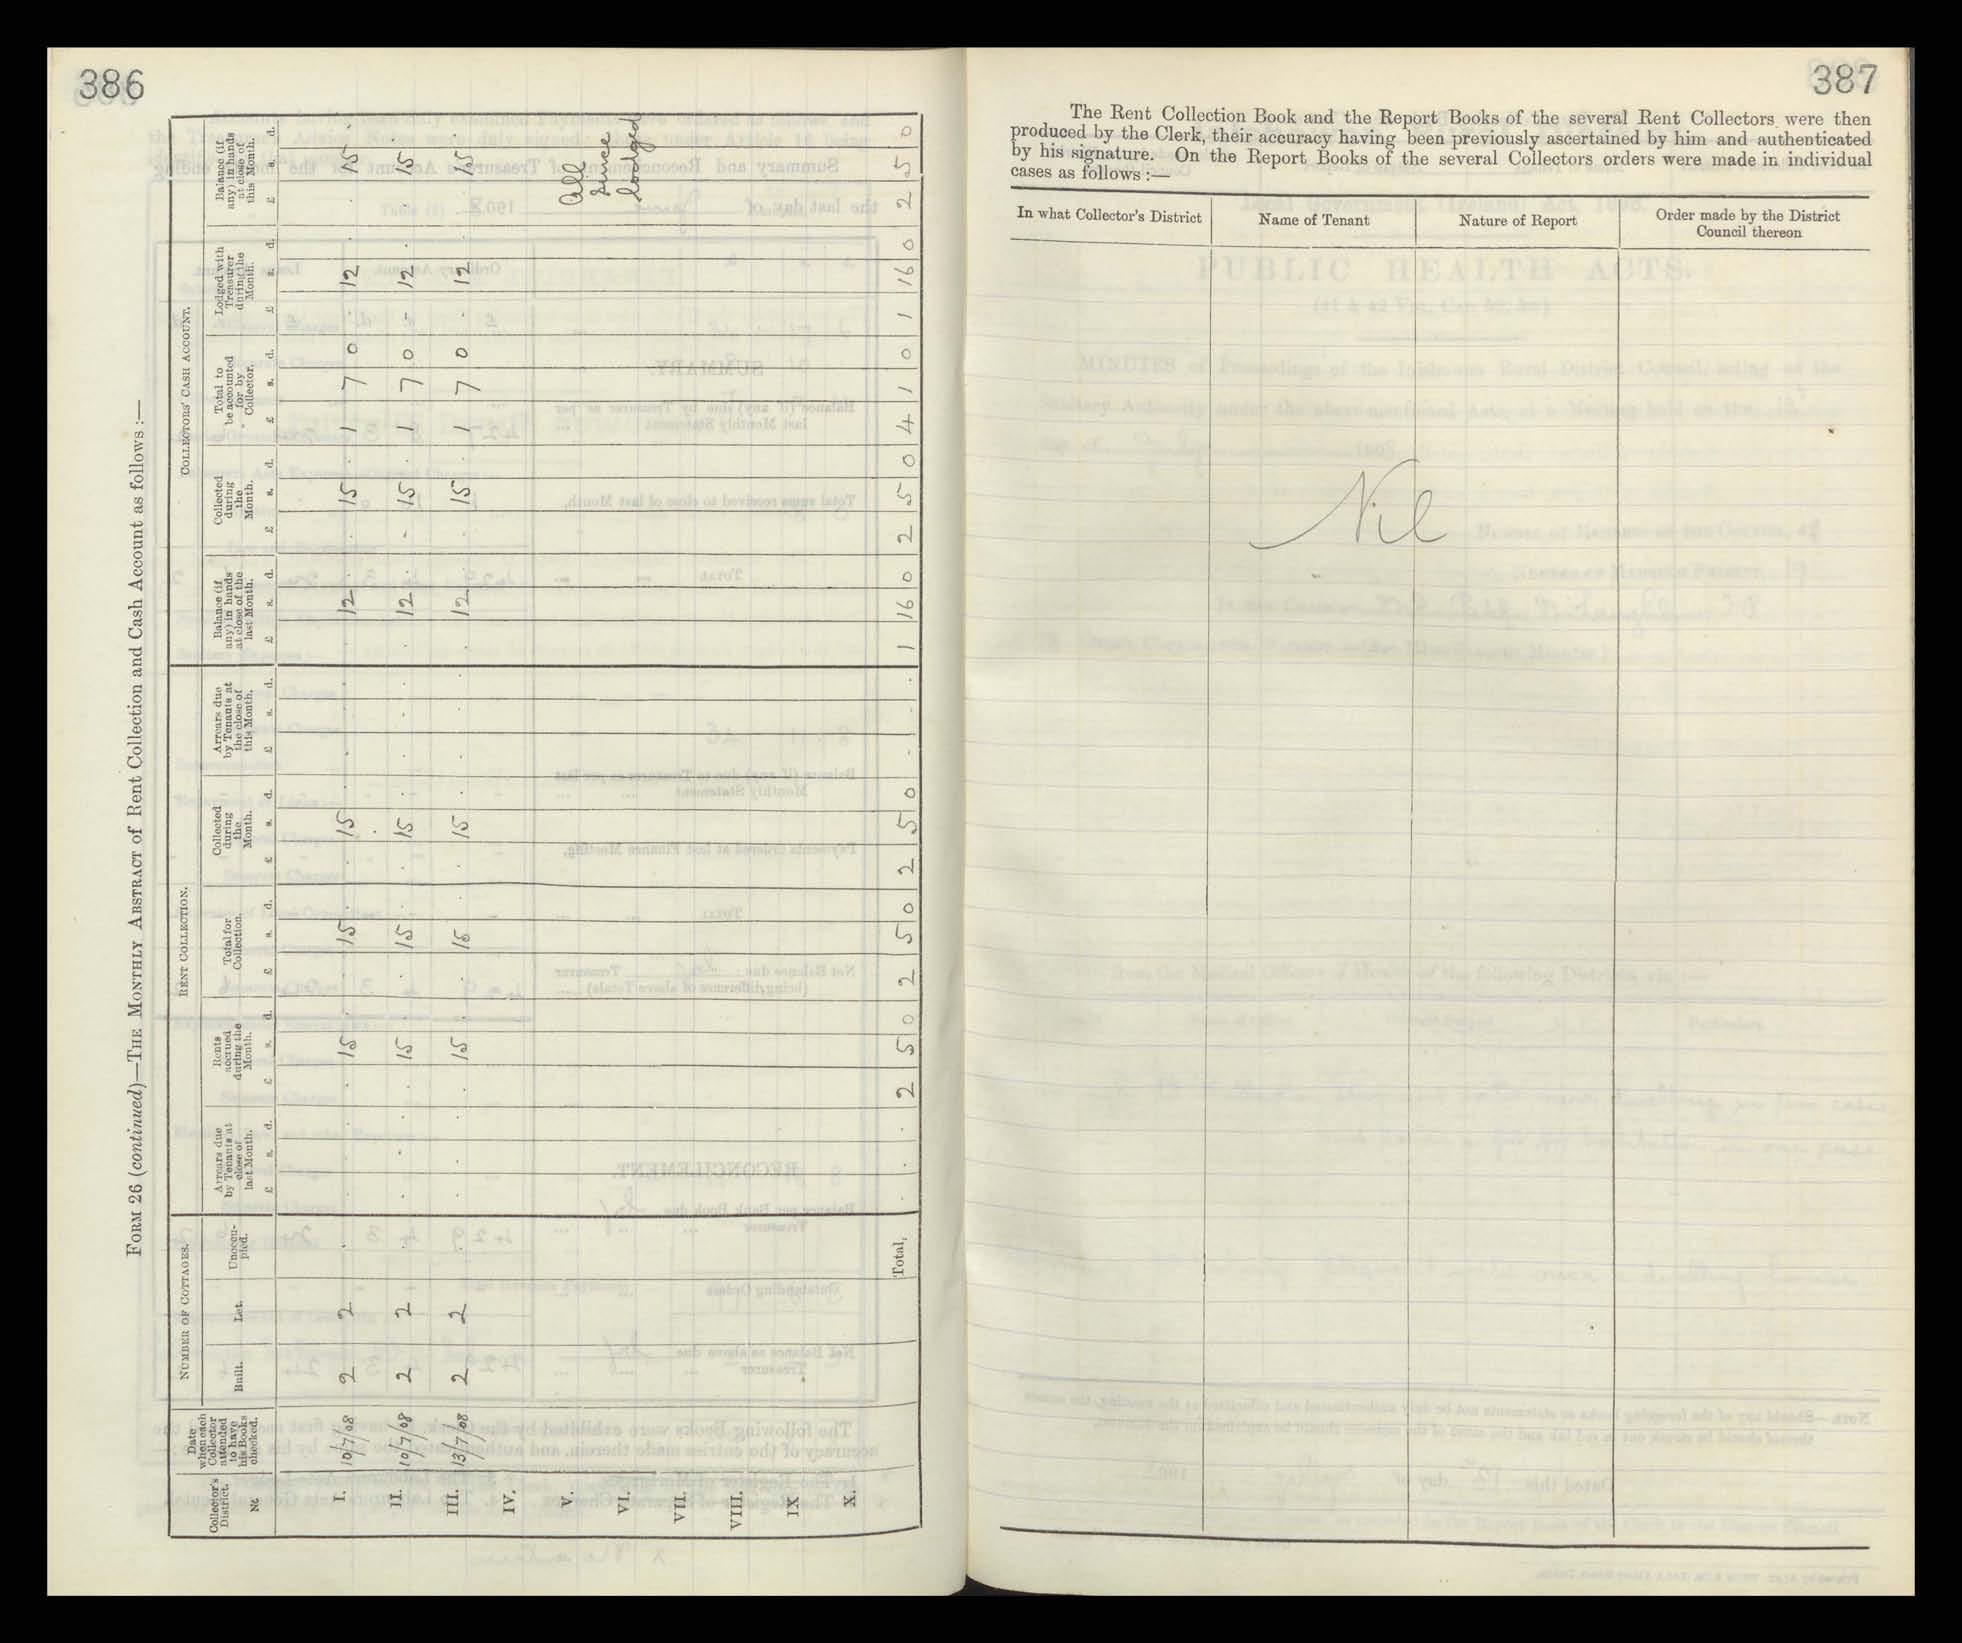 386
FORM 26 (continued)—THE MONTHLY ABSTRACT of Rent Collection and Cash Account as follows :—
Collector's District. No. | Date when each Collector attended to have his Books checked. | NUMBER OF COTTAGES. | RENT COLLECTION. | COLLECTORS' CASH ACCOUNT.
Built. | Let. | Unoccupied. | Arrears due by Tenants at close of last Month. | Rents accrued during the Month. | Total for Collection. | Collected during the Month. | Arrears due by Tenants at the close of this Month. | Balance (if any) in hands at close of the last Month. | Collected during the Month. | Total to be accounted for by Collector. | Lodged with Treasurer during the Month. | Balance (if any) in hands at close of this Month.
£ s. d. | £ s. d. | £ s. d. | £ s. d. | £ s. d. | £ s. d. | £ s. d. | £ s. d. | £ s. d. | £ s. d.
I. | 10/7/08 | 2 | 2 | . | . . . | . 15 . | . 15 . | . 15 . | . . . | . 12 . | . 15 . | 1 7 0 | . 12 . | . 15 .
II. | 10/7/08 | 2 | 2 | . | . . . | . 15 . | . 15 . | . 15 . | . . . | . 12 . | - 15 . | 1 7 0 | - 12 . | . 15 .
III. | 13/7/08 | 2 | 2 | . | . . . | . 15 . | . 15 . | . 15 . | . . . | . 12 . | . 15 . | 1 7 0 | . 12 . | . 15 .
IV.
V. All
VI. since
lodged
VII.
VIII.
IX
X.
Total, | . . . | 2 5 0 | 2 5 0 | 2 5 0 | . . . | 1 16 0 | 2 5 0 | 4 1 0 | 1 16 0 | 2 5 0
387
The Rent Collection Book and the Report Books of the several Rent Collectors were then
produced by the Clerk, their accuracy having been previously ascertained by him and authenticated
by his signature. On the Report Books of the several Collectors orders were made in individual
cases as follows :—
In what Collector's District | Name of Tenant | Nature of Report | Order made by the District Council thereon
Nil